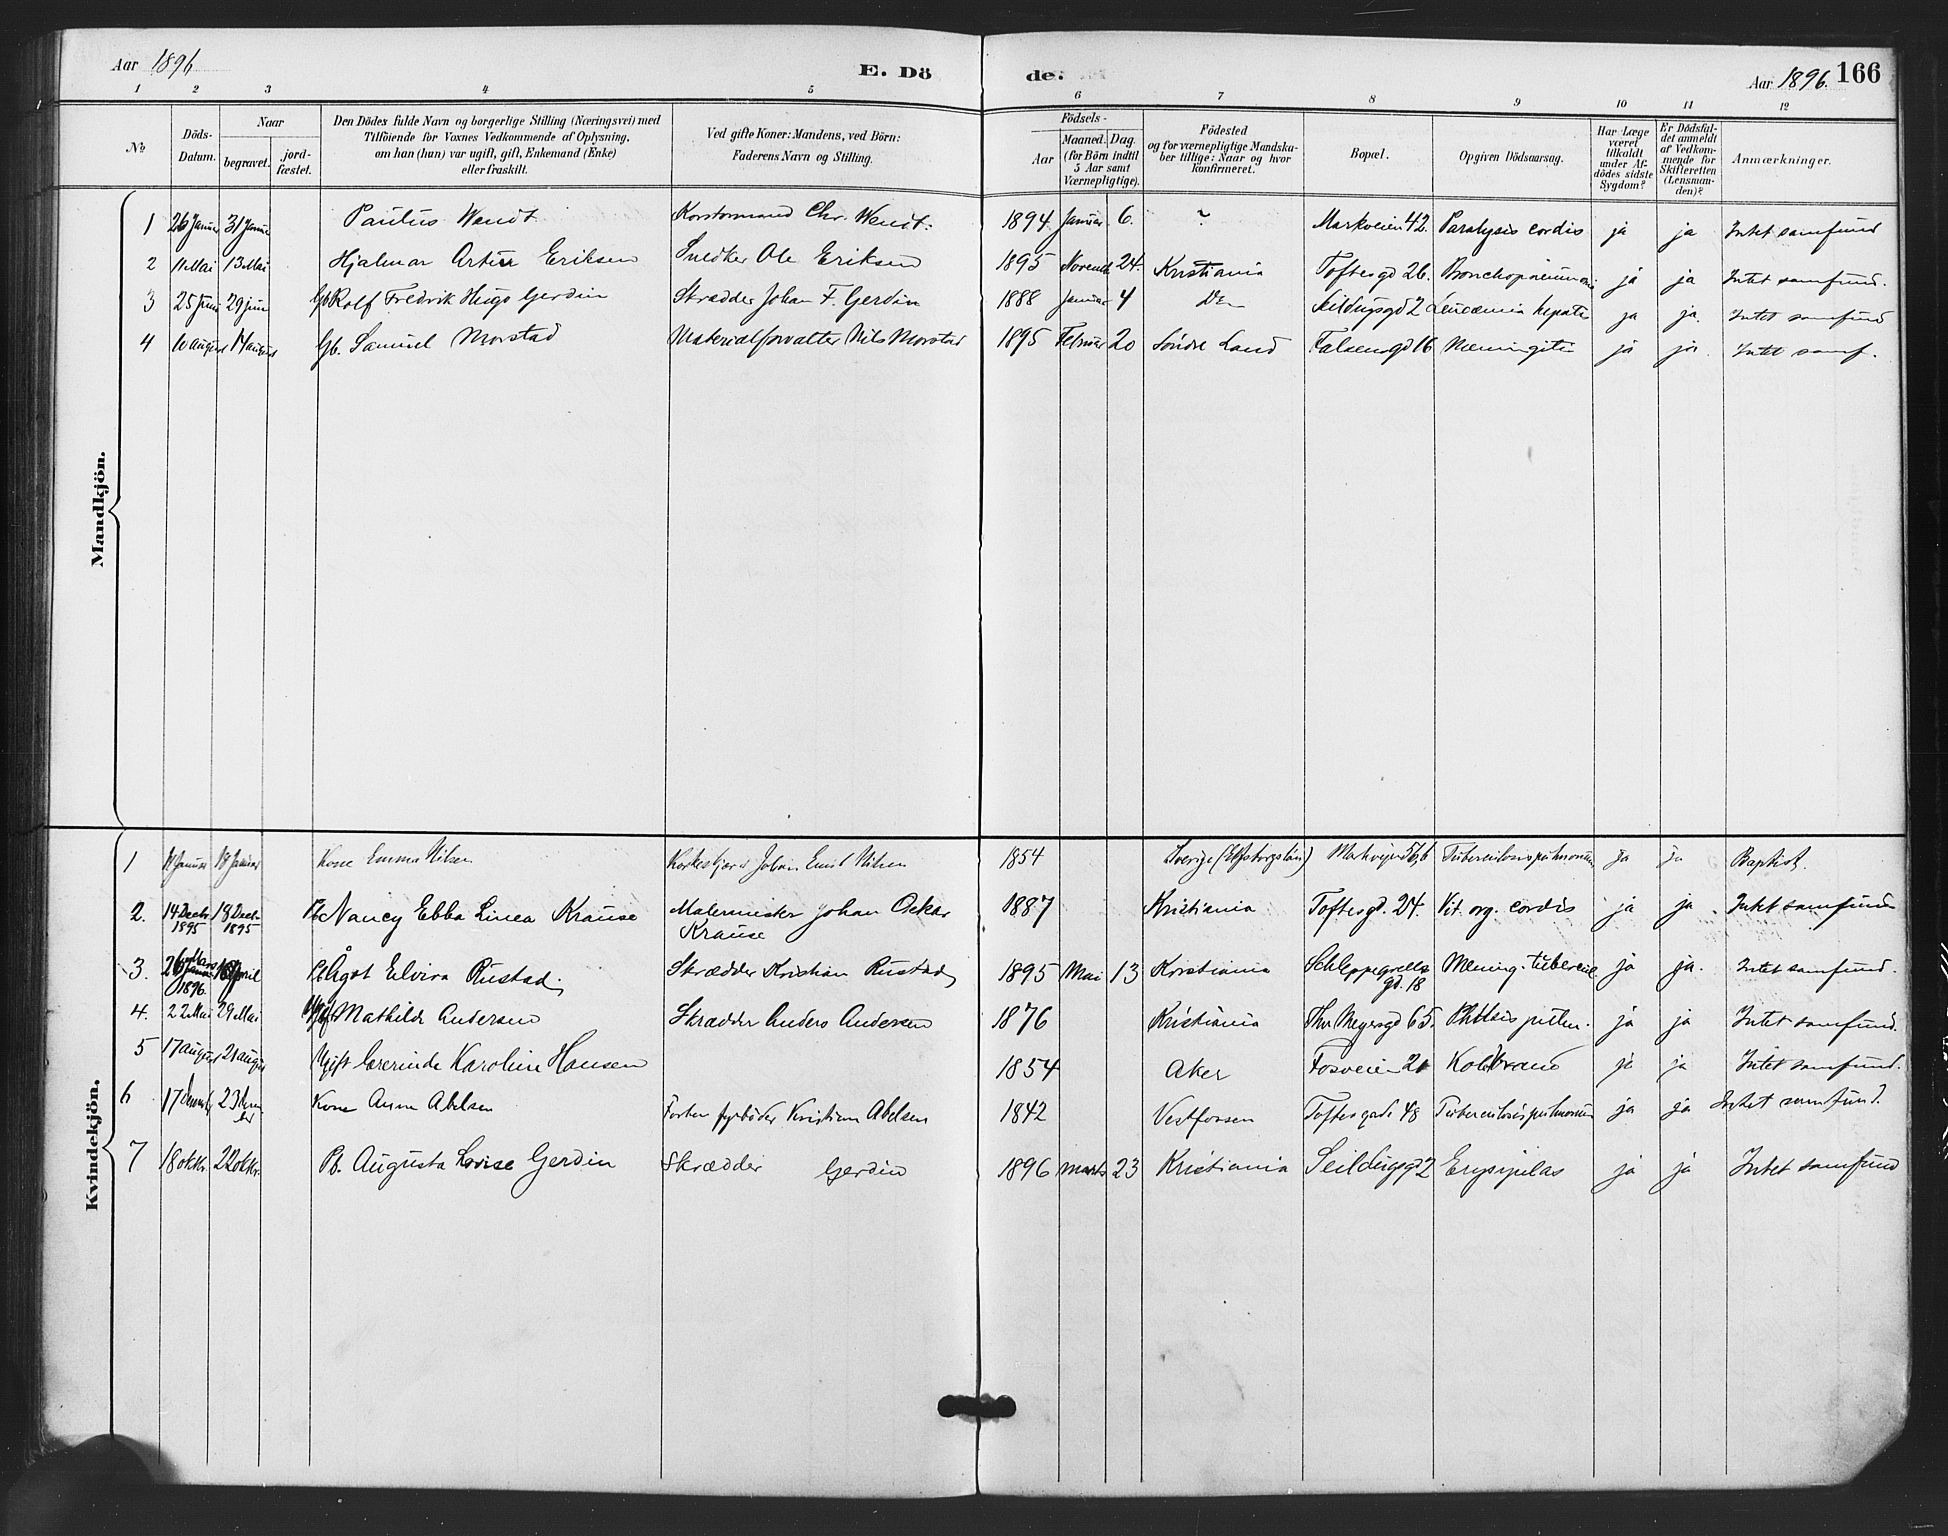 Aar 1896
E. Dö
de.
Aar 1896. 166
1 2 3 4 5 6 7 8 9 10 11 12
No.
Döds-Datum.
Naar
begravet.
jord-fæstet.
Den Dödes fulde Navn og borgerlige Stilling (Næringsvei) med
Tilföiende for Voxnes Vedkommende af Oplysning,
om han (hun) var ugift, gift, Enkemand (Enke)
eller fraskilt.
Ved gifte Koner: Mandens, ved Börn:
Faderens Navn og Stilling.
Födsels-
Aar
Maaned. Dag.
(for Börn indtil
5 Aar samt
Værnepligtige).
Födested
og for værnepligtige Mandska-
ber tillige: Naar og hvor
konfirmeret.
Bopæl.
Opgiven Dödsaarsag.
Har Læge
været
tilkaldt
under Af-
dödes sidste
Sygdom?
Er Dödsfal-
det anmeldt
af Vedkom-
mende for
Skifteretten
(Lensman-
den)?
Anmærkninger.
Mandkjön.
1 26 Januar 31 Januar Paulus Wendt Chr. Wendt. 1894 Januar 6. Markveien 42. Paralysis cordis ja ja Intet samfund
2 11 Mai 13 Mai Hjalmar Artur Eriksen Snedker Ole Eriksen 1895 Novemb 24. Kristiania Toftesgd 26. Bronchopneumoni ja ja Intet samfund.
3 25 Juni 29 juni Gb Rolf Fredrik Hugo Gerdin Skrædder Johan F. Gerdin 1888 Januar 4 Do Seildugsgd 2 Leucæmia hepatis ja ja. Intet samfund
4 10 august 14 august Gb. Samuel Morstad Materialforvalter Nils Morstad 1895 Februar 20 Söndre Land Falsensgd 16 Meningitis ja ja. Intet samf.
Kvindekjön.
1 Januar 18 Januar Kone Emma Nilsen Johan Emil Nilsen 1854 Sverige (Elfsborgslän) Markveien 56 b Tuberculosis pulmonum ja ja Baptist.
2. 14 Decbr. 1895 18 Decbr. 1895 Pb Nancy Ebba Linea Krause Malermester Johan Oskar
Krause 1887 Kristiania Toftesgd. 24. Vit. org. cordis ja ja. Intet samfund
3. 1896. April Pb Ågot Elvira Rustad Skrædder Kristian Rustad 1895 Mai 13 Kristiania Schleppegrells
gd. 18 Mening. tubercul ja ja. Intet samfund.
4. 22 Mai 29 Mai Ugift Mathilde Andersen Skrædder Anders Andersen 1876 Kristiania Thv Meyersgd 65. Phthisis pulm. ja ja Intet samfund.
5 17 august 21 august Ugift Karoline Hansen 1854 Aker Fosveien 20 Koldbrand ja ja Intet samfund.
6 17 Decemb 23 Decem
ber Kone Anne Abelsen fyrböder Kristian Abelsen 1842 Vestfossen Toftesgade 48 Tuberculosis pulmonum ja ja Intet samfund.
7 18 oktbr. 22 oktbr. Pb. Augusta Lovise Gerdin Skrædder Gerdin 1896 Marts 23 Kristiania Seildugsgd 2 Erysipelas ja ja Intet samfund